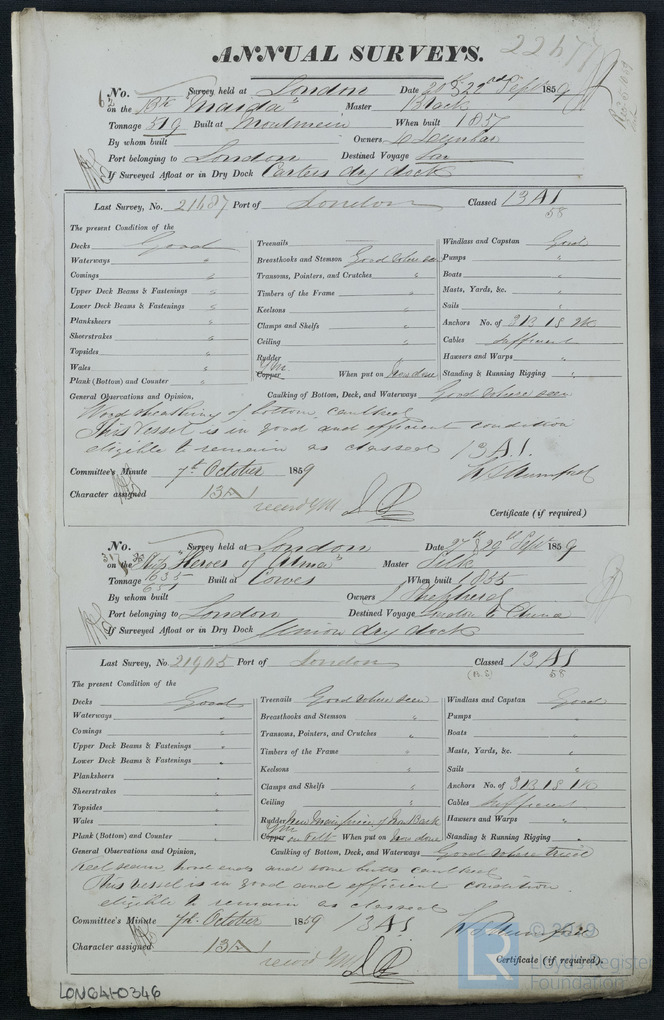 22677
ANNUAL SURVEYS.
No. 62 Survey held at London Date 20th & 22nd Sept 1859
on the Bk "Maida" Master Black
Tonnage 519 Built at Moulmein When built 1857
By whom built Owners
Port belonging to London Destined Voyage
If Surveyed Afloat or in Dry Dock dry dock
Last Survey, No. 21687 Port of London Classed 13 A1
58
The present Condition of the
Decks Good Treenails Windlass and Capstan Good
Waterways " Breasthooks and Stemson Good where seen Pumps "
Comings " Transoms, Pointers, and Crutches " Boats "
Upper Deck Beams & Fastenings " Timbers of the Frame " Masts, Yards, &c. "
Lower Deck Beams & Fastenings " Keelsons " Sails "
Planksheers " Clamps and Shelfs " Anchors No. of 3B 1S 2K
Sheerstrakes " Ceiling " Cables Sufficient
Topsides " Rudder Hawsers and Warps "
Wales " Copper YM When put on now done Standing & Running Rigging "
Plank (Bottom) and Counter "
General Observations and Opinion, Caulking of Bottom, Deck, and Waterways Good where seen
Wood sheathing of bottom, caulked
This Vessel is in good and efficient condition
eligible to remain as classed 13 A1.
Committee's Minute 7th October 1859
Character assigned 13 A1
record YM
Certificate (if required)
No. 63 Survey held at London Date 27th & 29th Sept 1859
on the Ship "Heroes of Alma" Master Silk
Tonnage 635 Built at Cowes When built 1855
651
By whom built Owners Shepherd
Port belonging to London Destined Voyage London to China
If Surveyed Afloat or in Dry Dock Union dry dock
Last Survey, No. 21905 Port of London Classed 13 A1
58
The present Condition of the
Decks Good Treenails Good where seen Windlass and Capstan Good
Waterways " Breasthooks and Stemson " Pumps "
Comings " Transoms, Pointers, and Crutches " Boats "
Upper Deck Beams & Fastenings " Timbers of the Frame " Masts, Yards, &c. "
Lower Deck Beams & Fastenings " Keelsons " Sails "
Planksheers " Clamps and Shelfs " Anchors No. of 3B 1S 1K
Sheerstrakes " Ceiling " Cables Sufficient
Topsides " Rudder New Main piece & New Back Hawsers and Warps "
Wales " Copper YM on Felt When put on now done Standing & Running Rigging "
Plank (Bottom) and Counter "
General Observations and Opinion, Caulking of Bottom, Deck, and Waterways Good where tried
Keel seam, hood ends and some butts caulked
This vessel is in good and efficient condition
eligible to remain as classed
13 A1
Committee's Minute 7th October 1859
Character assigned 13 A1
record YM
Certificate (if required).
LON641-0346
LR
© 2019
Lloyd's Register
Foundation